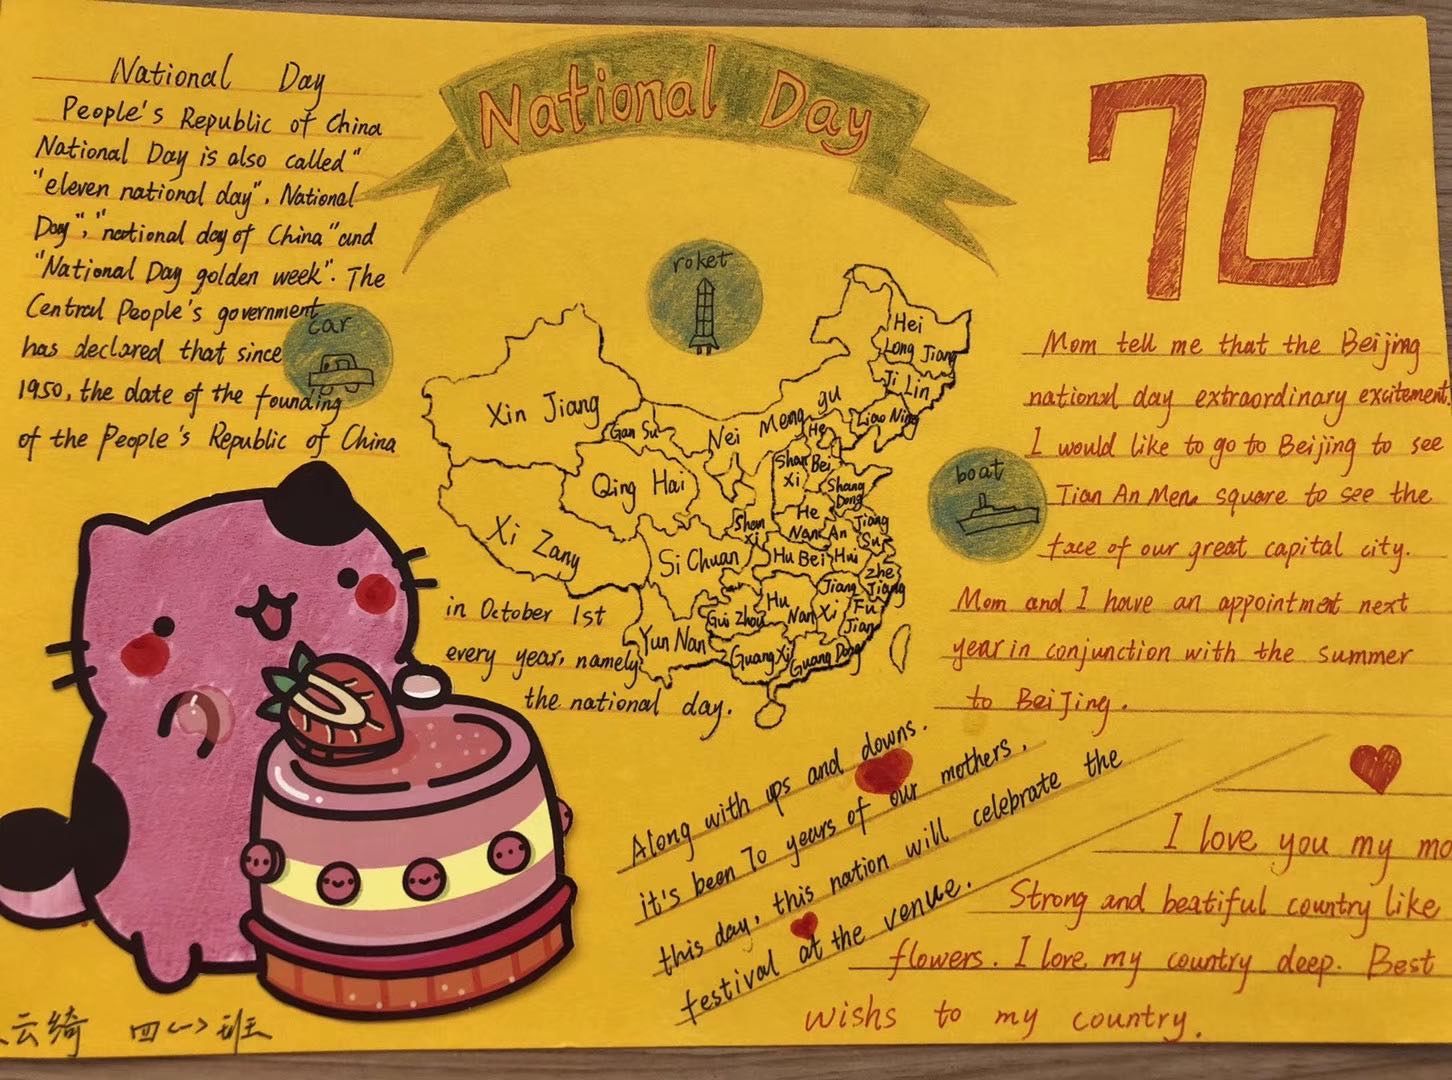 National Day
National Day
People's Republic of China
National Day is also called"
"eleven national day", National
Day","national day of China"and
"National Day golden week". The
Central People's government
has declared that since
1950, the date of the founding
of the People's Republic of China
in October 1st
every year, namely
the national day.
car
roket
boat
70
Hei
Long Jiang
Ji Lin
Liao Ning
Nei Meng gu
Xin Jiang
Gan Su
He
Bei
Shan
Xi
Shang
Dong
Qing Hai
Xi Zang
Shan
xi
He
Nan
An
Hui
Jiang
Su
Si Chuan
Hu Bei
zhe
Jiang
Hu
Nan
Jiang
Xi
Fu
Jian
Gui Zhou
Yun Nan
Guang Xi
Guang Dong
Mom tell me that the Beijing
national day extraordinary excitement.
I would like to go to Beijing to see
Tian An Men square to see the
face of our great capital city.
Mom and I have an appointment next
year in conjunction with the summer
to BeiJing.
Along with ups and downs.
it's been 70 years of our mothers,
this day, this nation will celebrate the
festival at the venue.
I love you my mo
Strong and beatiful country like
flowers. I love my country deep. Best
wishs to my country.
云绮 四<一>班